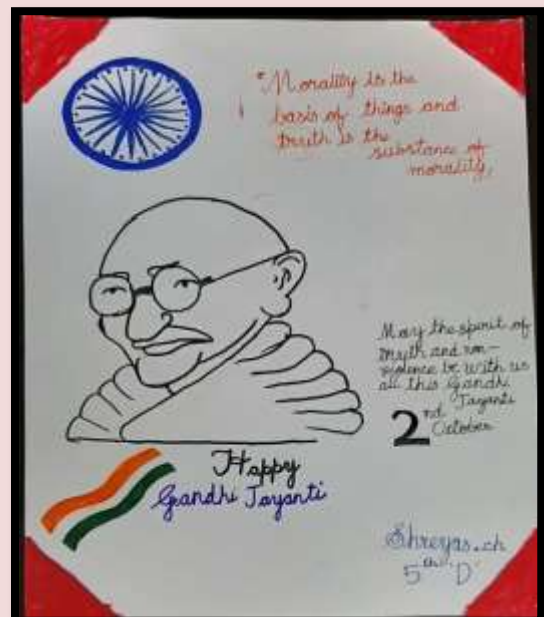 "Morality is the
basis of things and
truth is the
substance of
morality,
May the spirit of
truth and non-
violence be with us
all this Gandhi
Jayanti
2nd October
Happy
Gandhi Jayanti
Shreyas.ch
5th 'D'